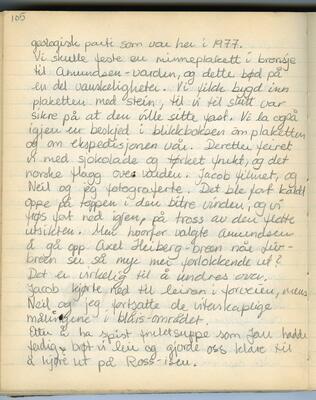 105
geologisk parti som var her i 1977.
Vi skulle feste en minneplakett i bronsje
til Amundsen-varden, og dette bød på
en del vanskeligheter. Vi fikk bygd inn
plaketten med stein, til vi til slutt var
sikre på at den ville sitte fast. Vi la også
igjen en beskjed i blikkboksen om plaketten
og om ekspedisjonen vår. Deretter feiret
vi med sjokolade og tørket frukt, og det
norske flagg over varden. Jacob filmet, og
Neil og jeg fotograferte. Det ble fort kaldt
oppe på toppen i den bitre vinden, og vi
føys fort ned igjen, på tross av den flotte
utsikten. Men hvorfor valgte Amundsen
å gå opp Axel Heiberg-breen når Liv-
breen ser så mye mer forlokkende ut?
Det er virkelig til å undres over.
Jacob kjørte ned til leiren i forveien, mens
Neil og jeg fortsatte de vitenskaplige
målingene i blåis-området.
Etter å ha spist fruktsuppe som Jan hadde
ferdig, brøt vi leir og gjorde oss klare til
å kjøre ut på Ross-isen.